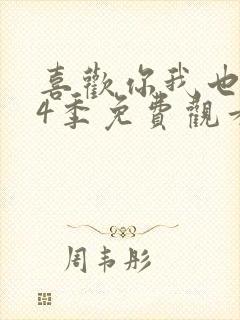 喜歡你我也
4季免費觀
周韦彤